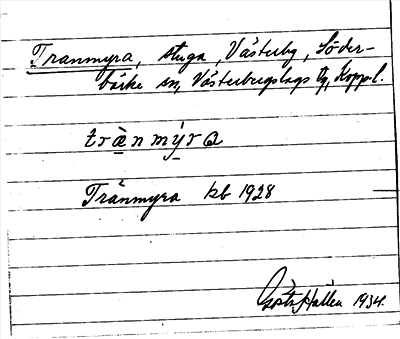 Tranmyra, stuga, Västerby, Söder-
bärke sn, Västerbergslags tg, Koppl.
trànmýra
Tränmyra kb 1928
Gösta Hallén 1934.